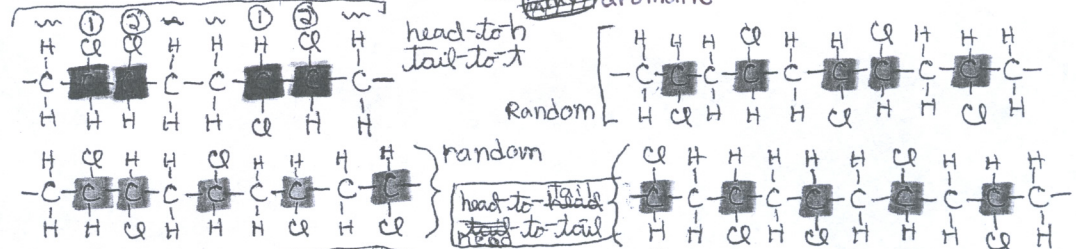 aromatic
① ② ① ②
H Cl Cl H H H Cl H
-C-C-C-C-C-C-C-C-
H H H H H Cl H H
head-to-h
tail-to-t
Random
H H H Cl H H Cl H H H
-C-C-C-C-C-C-C-C-C-C-
H Cl H H H Cl H H Cl H
H Cl Cl H Cl H H H H
-C-C-C-C-C-C-C-C-C-
H H H H H H Cl H Cl
random
head-to-tail
head-to-tail
Cl H H H H H Cl H H H
-C-C-C-C-C-C-C-C-C-C-
H H H H Cl H H H Cl H